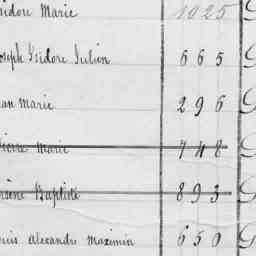 sidore Marie 1925 G
oseph Isidore Julien 665 G
ean Marie 296 G
Pierre Marie 748 G
rsène Baptiste 893 G
ouis Alexandre Maximin 650 G